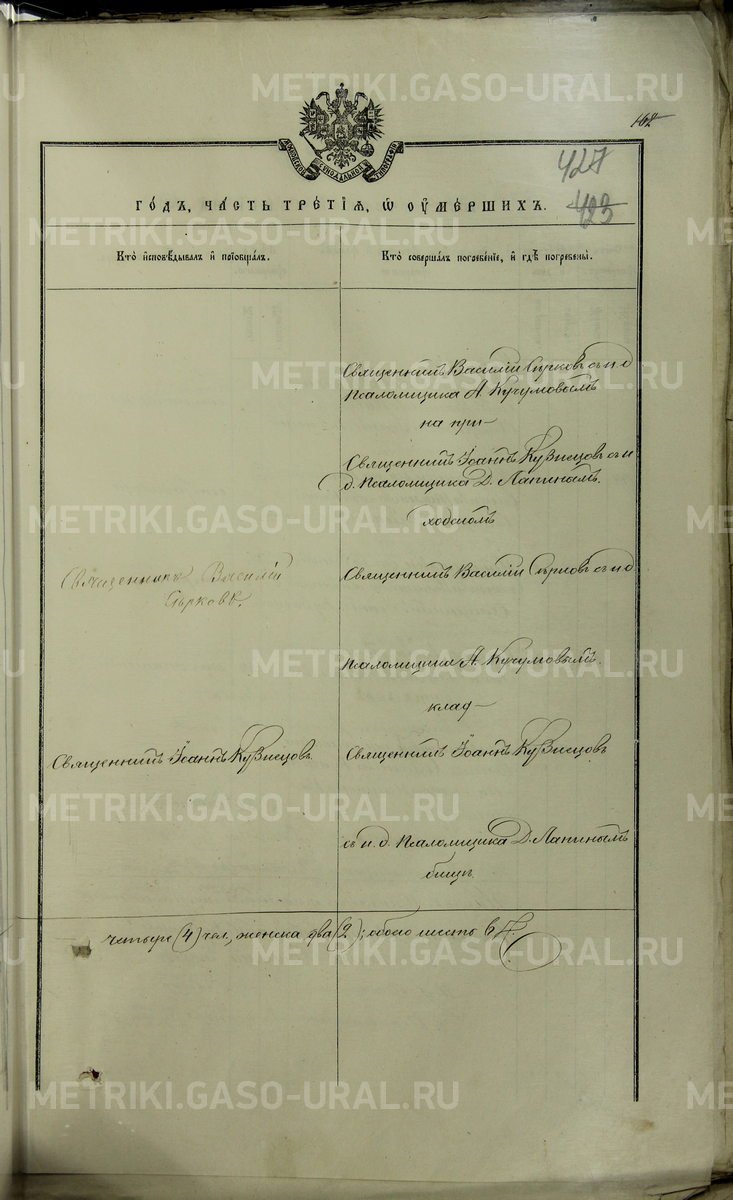 162
427
423
МОСКОВСКОЙ СѴНОДАЛЬНОЙ ТИПОГРАФІИ
ГО́ДЪ, ЧА́СТЬ ТРЕ́ТІѦ, Ѡ҆ ОУ҆МЕ́РШИХЪ.
Кто̀ и҆сповѣ́дывалъ и҆ пріѡбща́лъ.
Кто̀ соверша́лъ погребе́нїе, и҆ гдѣ̀ погребены̀.
Священникъ Василій Сѣрковъ съ и. д.
Псаломщика А. Кучумовымъ
на при-
Священникъ Іоаннъ Кузнецовъ съ и
д. Псаломщика Д. Лапинымъ.
ходскомъ
Священникъ Василій
Сѣрковъ.
Священникъ Василій Сѣрковъ съ и. д.
Псаломщика А. Кучумовымъ.
клад-
Священникъ Іоаннъ Кузнецовъ.
Священникъ Іоаннъ Кузнецовъ
съ и. д. Псаломщика Д. Лапинымъ
бищѣ.
четыре (4) чел, женска два (2); обоего шесть 6
METRIKI.GASO-URAL.RU